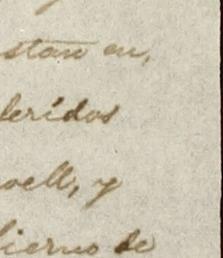 stan en,
feridos
well, y
bierno de